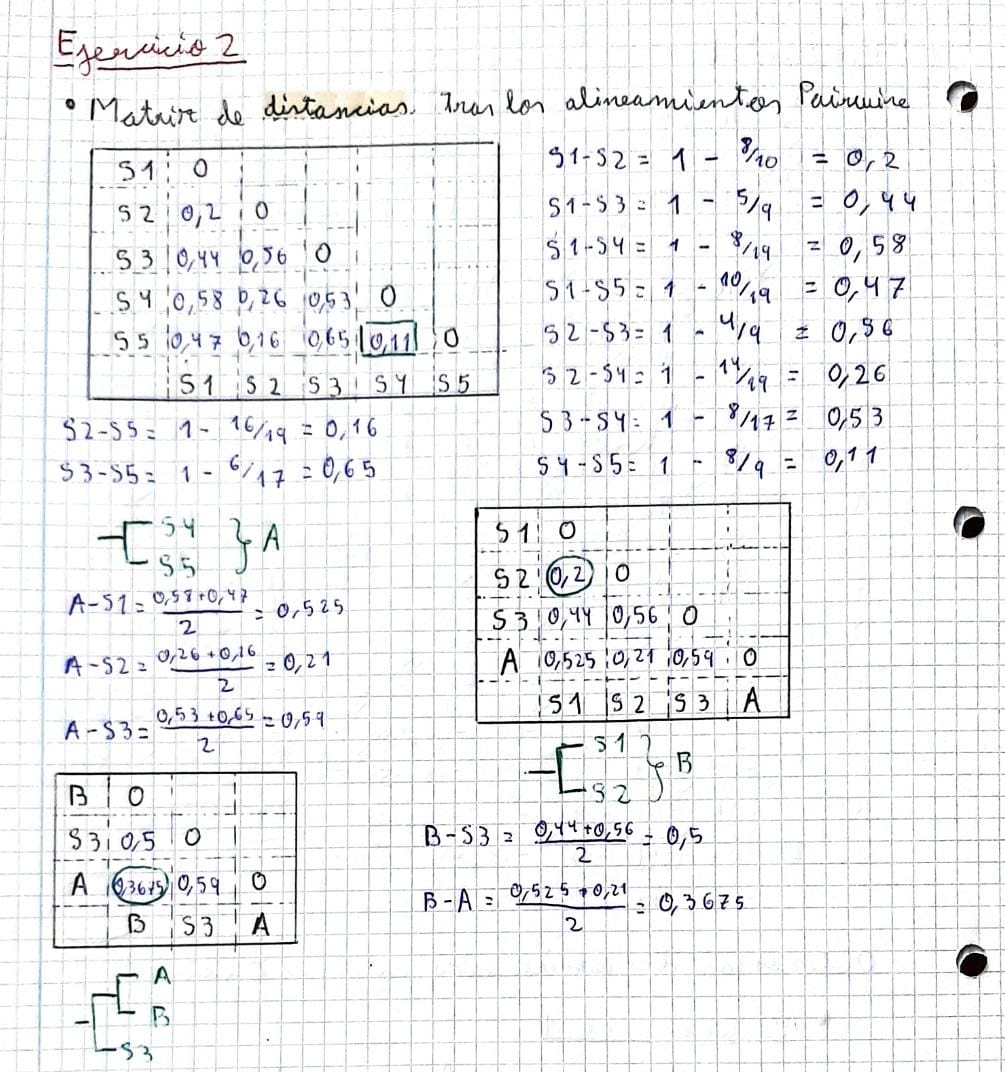 Ejercicio 2
• Matriz de distancias. Tras los alineamientos Pairwire
S1 0
S2 0,2 0
S3 0,44 0,56 0
S4 0,58 0,26 0,53 0
S5 0,47 0,16 0,65 0,11 0
S1 S2 S3 S4 S5
S1-S2 = 1 - 8/10 = 0,2
S1-S3 = 1 - 5/9 = 0,44
S1-S4 = 1 - 8/19 = 0,58
S1-S5 = 1 - 10/19 = 0,47
S2-S3 = 1 - 4/9 = 0,56
S2-S4 = 1 - 14/19 = 0,26
S3-S4 = 1 - 8/17 = 0,53
S4-S5 = 1 - 8/9 = 0,11
S2-S5 = 1 - 16/19 = 0,16
S3-S5 = 1 - 6/17 = 0,65
S4
S5
} A
A-S1 = 0,58+0,47/2 = 0,525
A-S2 = 0,26+0,16/2 = 0,21
A-S3 = 0,53+0,65/2 = 0,59
S1 0
S2 0,2 0
S3 0,44 0,56 0
A 0,525 0,21 0,59 0
S1 S2 S3 A
S1
S2
} B
B-S3 = 0,44+0,56/2 = 0,5
B-A = 0,525+0,21/2 = 0,3675
B 0
S3 0,5 0
A 0,3675 0,59 0
B S3 A
A
B
S3